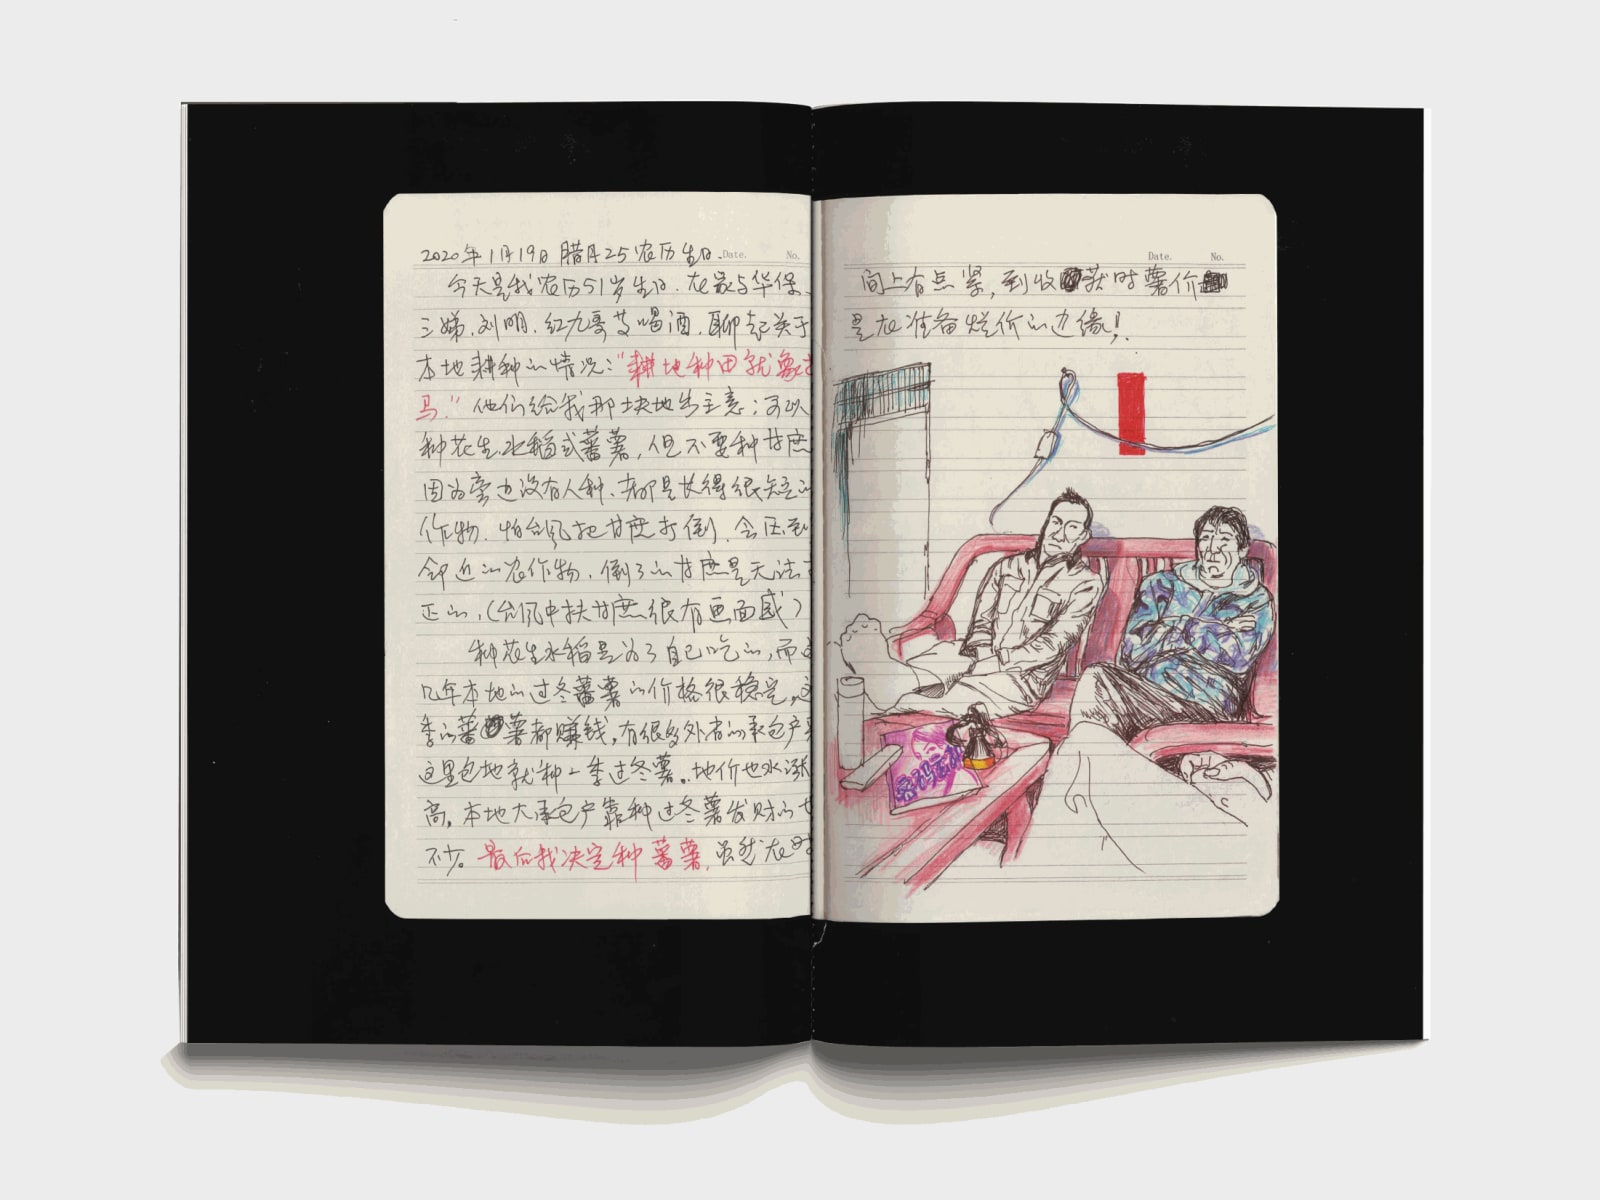 2020年1月19日 腊月25 农历生日. Date. No.
今天是我农历51岁生日.在家与华保、
三娣.刘明.红九哥等喝酒.聊起关于
本地耕种的情况:"耕地种田就象
马."他们给我那块地出主意:可以
种花生.水稻或蕃薯,但不要种甘蔗
因为旁边没有人种.都是长得很矮的
作物.怕台风把甘蔗打倒.会压到
邻近的农作物.倒了的甘蔗是无法
正的.(台风中扶甘蔗很有画面感)
种花生水稻是为了自己吃的,而
几年本地的过冬蕃薯的价格很稳定。
季的蕃薯都赚钱。有很多外省的承包户
这里包地就种一季过冬薯。地价也水涨
高。本地大承包户靠种过冬薯发财的
不少。最后我决定种蕃薯,虽然在时
Date. No.
间上有点紧,到收获时薯价
是在准备烂价的边缘!